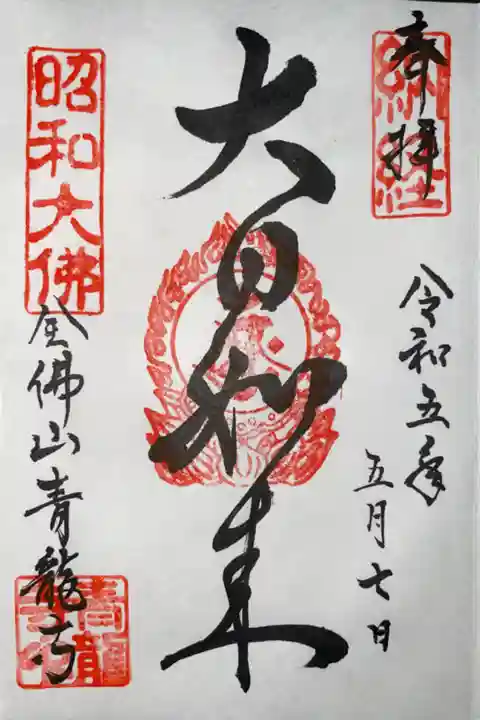 奉拝
納経
令和五年
五月七日
大日如来
昭和大佛
全佛山青龍寺
青龍